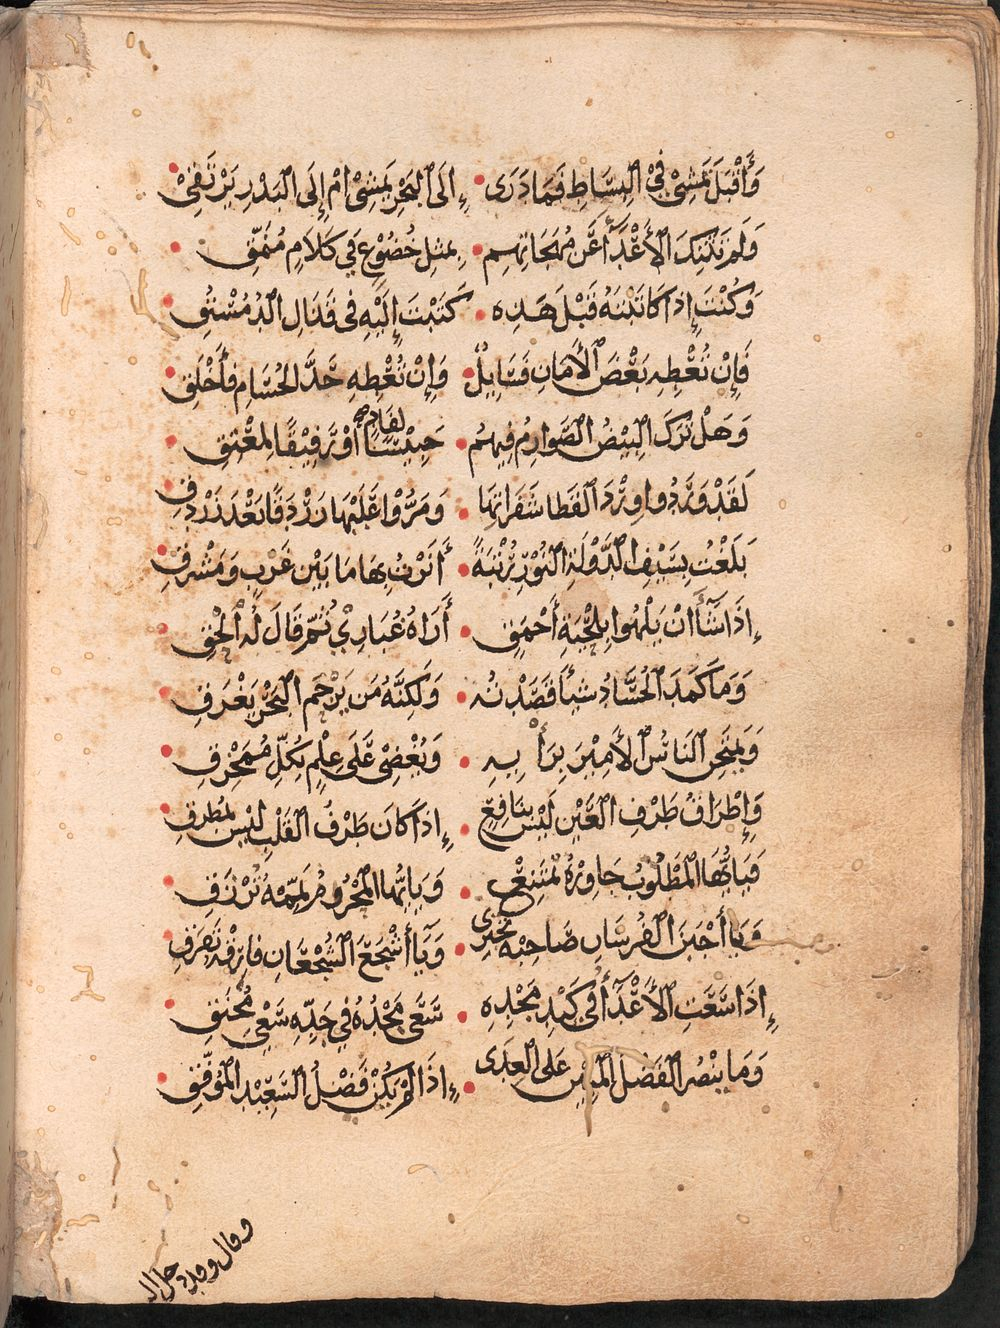 وَأَقْبَلَ يَمْشِي فِي الْبِسَاطِ فَمَا دَرَى • إِلَى الْبَحْرِ يَمْشِي أَمْ إِلَى الْبَدْرِ يَرْتَقِي •
وَلَمْ تَثْنِكَ الْأَعْدَاءُ عَن مُهَجَاتِهِم • بِمِثْلِ خُضُوعٍ فِي كَلَامٍ مُنَمَّقِ •
وَكُنْتَ إِذَا كَاتَبْتَهُ قَبْلَ هَذِهِ • كَتَبْتَ إِلَيْهِ فِي قَذَالِ الدُّمُسْتُقِ •
فَإِنْ تُعْطِهِ بَعْضَ الْأَمَانِ فَسَايِلٌ • وَإِنْ تُعْطِهِ حَدَّ الْحُسَامِ فَأَخْلِقِ •
وَهَلْ تَرَكَ الْبِيضُ الصَّوَارِمُ فِيهِمُ • حَبِيْسًا لِفَادٍ أَوْ رَفِيقًا لِمُعْتِقِ •
لَقَدْ وَرَدُوا وِرْدَ الْقَطَا شَفَرَاتِهَا • وَمَرُّوا عَلَيْهَا رَزْدَقًا بَعْدَ رَزْدَقِ
بَلَغْتُ بِسَيْفِ الدَّوْلَةِ النُّوْرِ رُتْبَةً • أَثَرْتُ بِهَا مَا بَيْنَ غَرْبٍ وَمَشْرِقِ •
إِذَا شَاءَ أَنْ يَلْهُوا بِلِحْيَةِ أَحْمَقٍ • أَرَاهُ غُبَارِيْ ثُمَّ قَالَ لَهُ الْحَقِ •
وَمَا كَمَدَ الْحُسَّادِ شَيْأً قَصَدْتُهُ • وَلَكِنَّهُ مَن يَرْحَمِ الْبَحْرَ يَغْرَقِ •
وَيَمْتَحِنُ النَّاسَ الْأَمِيْرُ بِرَأْيِهِ • وَيُغْضِي عَلَى عِلْمٍ بِكُلِّ مُمَخْرِقِ •
وَإِطْرَاقُ طَرْفِ الْعَيْنِ لَيْسَ بِنَافِعٍ • إِذَا كَانَ طَرْفُ الْقَلْبِ لَيْسَ بِمُطْرِقِ •
فَيَا أَيُّهَا الْمَطْلُوبُ جَاوِرْهُ تَمْتَنِعْ • وَيَا أَيُّهَا الْمَحْرُومُ يَمِّمْهُ تُرْزَقِ •
وَيَا أَجْبَنَ الْفُرْسَانِ صَاحِبْهُ تَجْتَرِى • وَيَا أَشْجَعَ الشُّجْعَانِ فَارِقْهُ تَفْرَقِ •
إِذَا سَعَتِ الْأَعْدَاءُ فِي كَيْدِ مَجْدِهِ • سَعَى مَجْدُهُ فِي جَدِّهِ سَعْيَ مُحْنَقِ •
وَمَا يَنْصُرُ الْفَضْلُ الْمُبِيْنُ عَلَى الْعِدَى • إِذَا لَمْ يَكُنْ فَضْلُ السَّعِيْدِ الْمُوَفَّقِ •
وقال وقد